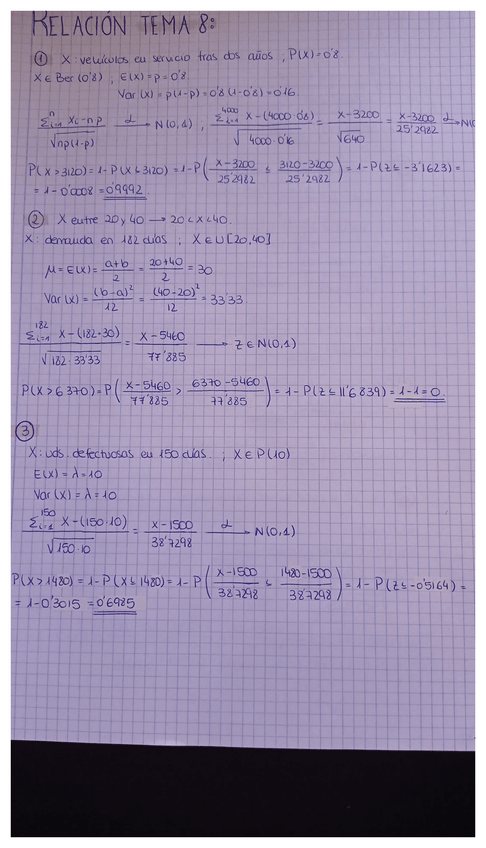 RELACIÓN TEMA 8:
① X: vehículos en servicio tras dos años, P(X)=0'8
X∈Ber(0'8), E(X)=p=0'8
Var(X)=p(1-p)=0'8(1-0'8)=0'16
∑ⁿᵢ₌₁ Xᵢ-np / √np(1-p) →ᵈ N(0,1); ∑⁴⁰⁰⁰ᵢ₌₁ X-(4000·0'8) / √4000·0'16 = X-3200 / √640 = X-3200 / 25'2982 →ᵈ N(0
P(X>3120)=1-P(X≤3120)=1-P(X-3200 / 25'2982 ≤ 3120-3200 / 25'2982)=1-P(Z≤-3'1623)=
=1-0'0008=0'9992
② X entre 20 y 40 → 20<X<40.
X: demanda en 182 días; X∈U[20,40]
μ=E(X)= a+b / 2 = 20+40 / 2 = 30
Var(X)= (b-a)² / 12 = (40-20)² / 12 = 33'33
∑¹⁸²ᵢ₌₁ X-(182·30) / √182·33'33 = X-5460 / 77'885 → Z∈N(0,1)
P(X>6370)=P(X-5460 / 77'885 > 6370-5460 / 77'885)=1-P(Z≤11'6839)=1-1=0
③
X: uds. defectuosas en 150 días.; X∈P(10)
E(X)=λ=10
Var(X)=λ=10
∑¹⁵⁰ᵢ₌₁ X-(150·10) / √150·10 = X-1500 / 38'7298 →ᵈ N(0,1)
P(X>1480)=1-P(X≤1480)=1-P(X-1500 / 38'7298 ≤ 1480-1500 / 38'7298)=1-P(Z≤-0'5164)=
=1-0'3015=0'6985